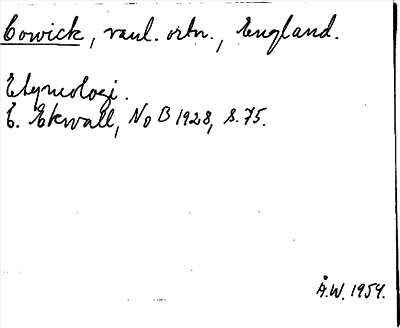 Cowick, vanl. ortn., England.
Etymologi.
E. Ekwall, NoB 1928, s. 75.
Å.W. 1954.